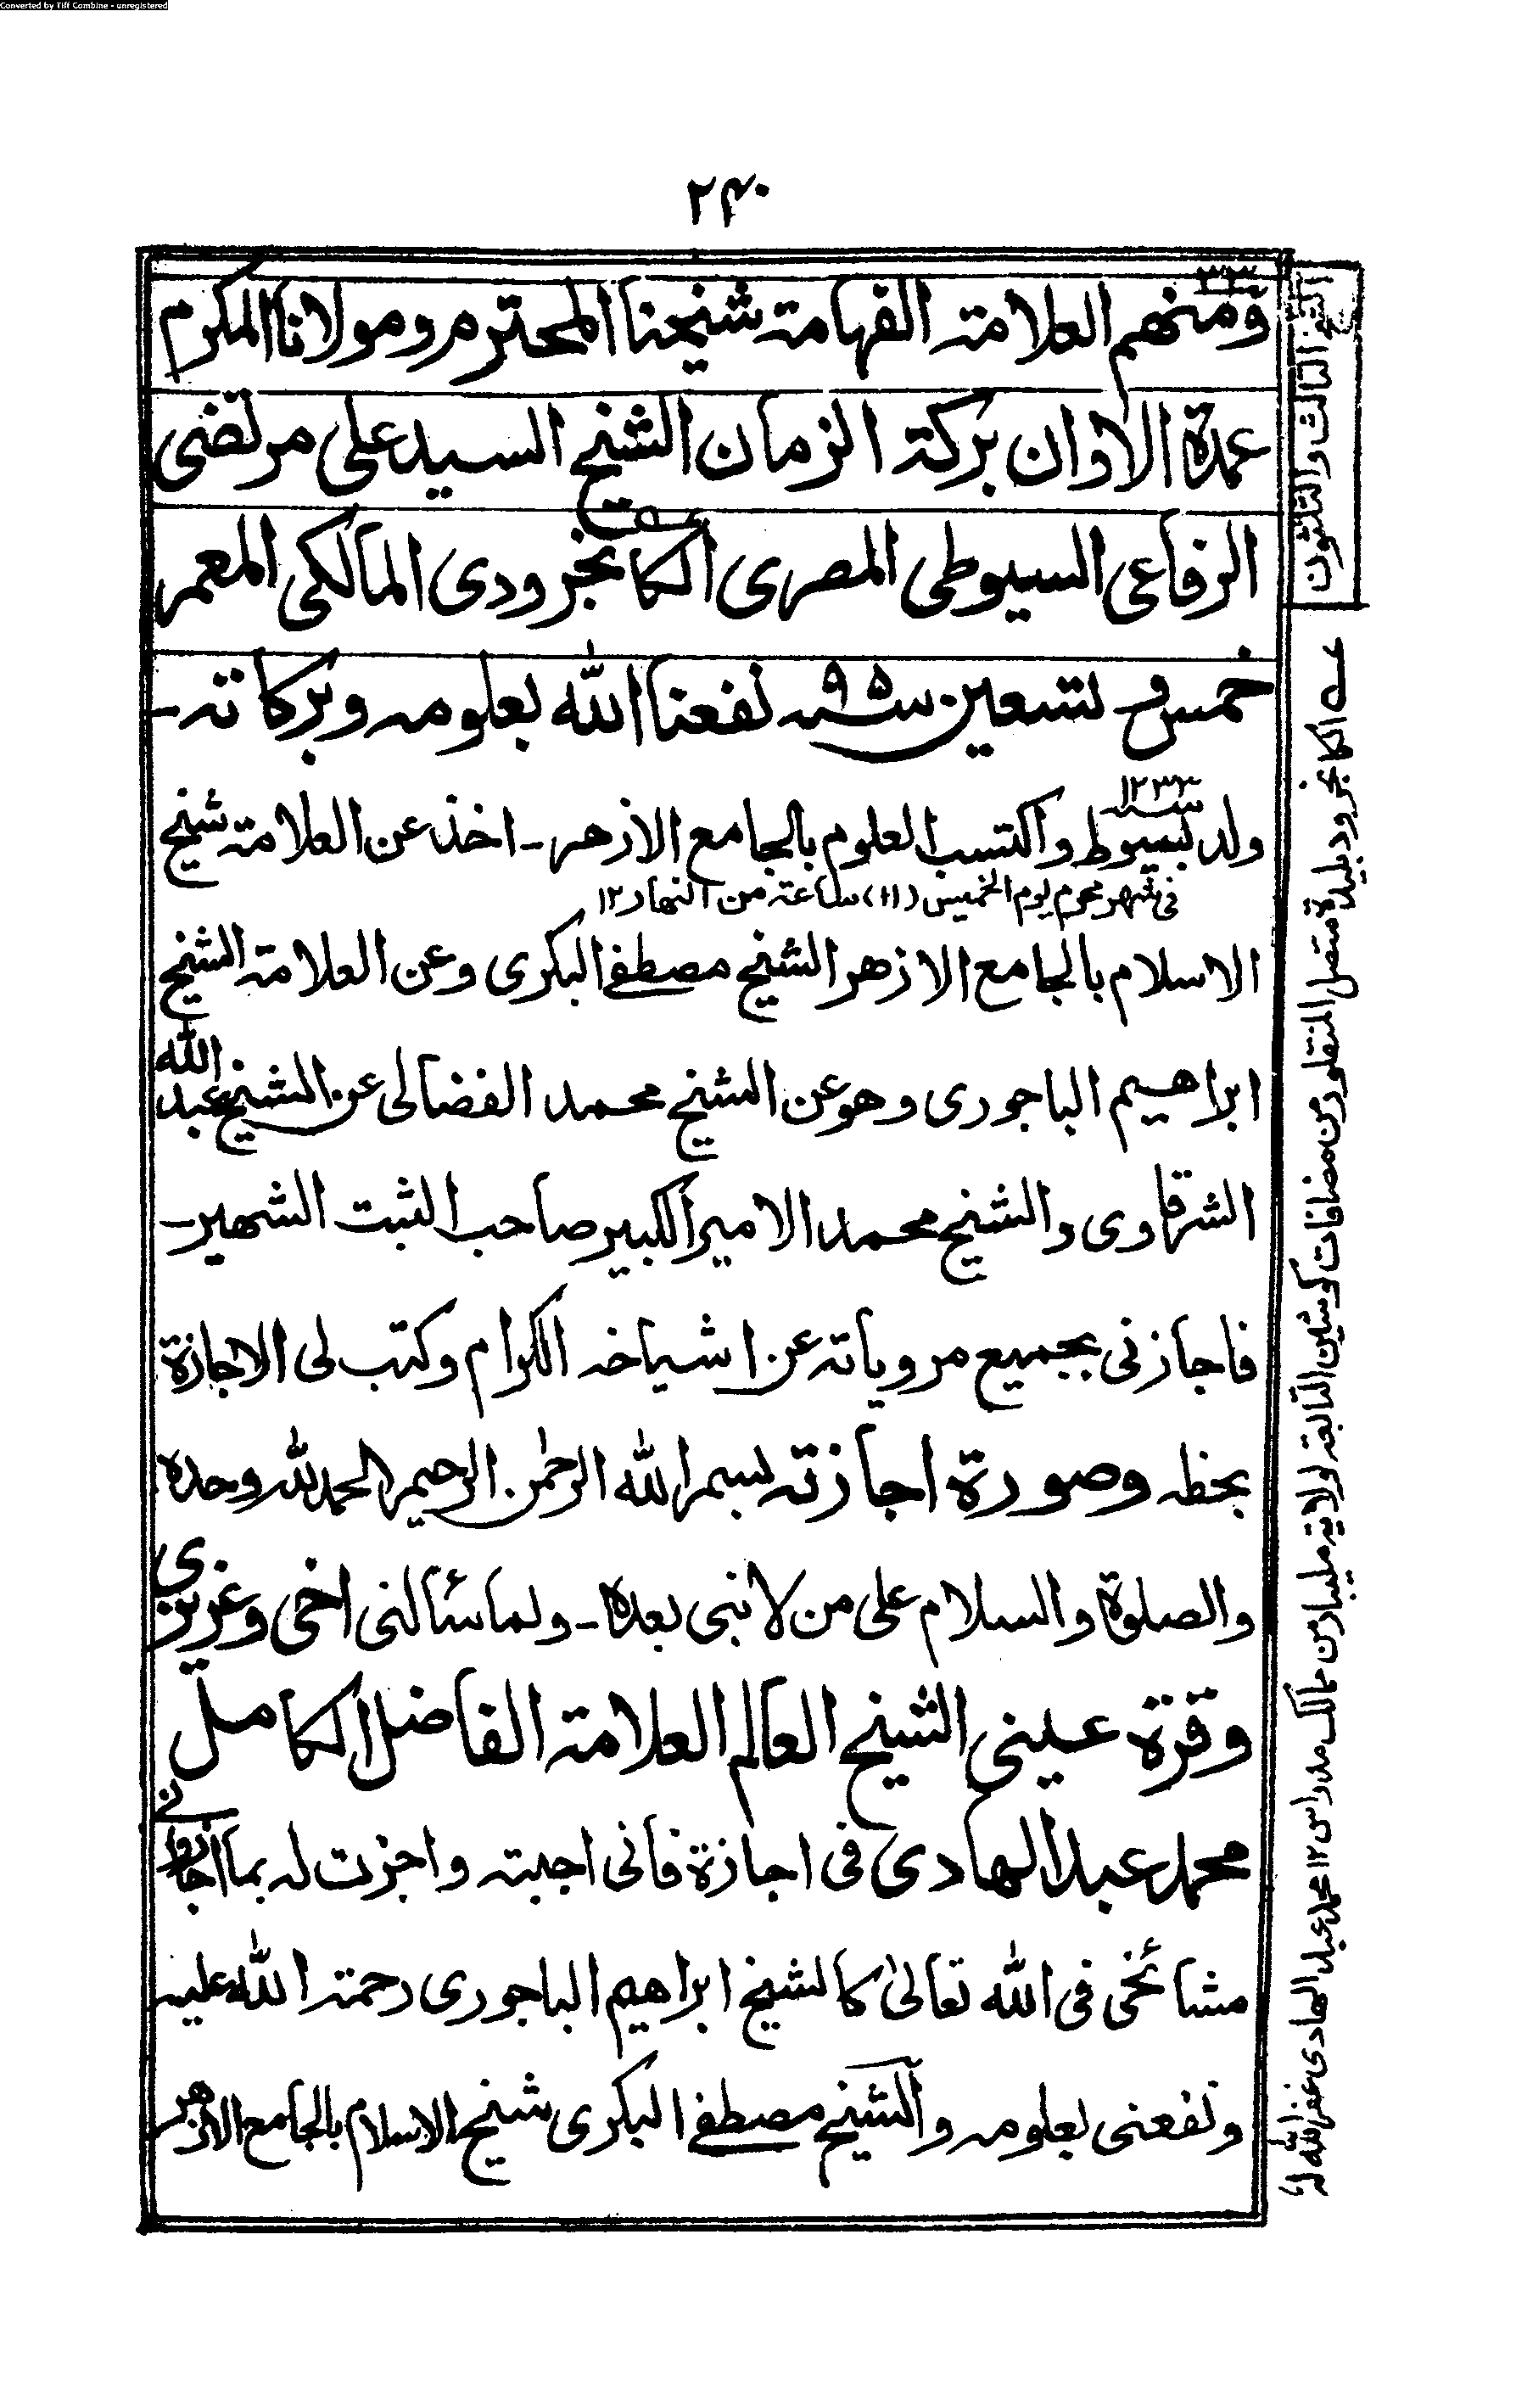 Converted by Tiff Combine - unregistered
۲۴۰
۳۳
ومنهم العلامة الفهامة شيخنا المحترم ومولانا المكرم
عمدة الاوان بركة الزمان الشيخ السيد على مرتضى
الرفاعى السيوطى المصرى الكانجرودى المالكى المعمر
خمس و تسعين سنه ۹۵ نفعنا الله بعلومه وبركاته -
ولد بسيوط سنه ۱۲۳۳ واكتسب العلوم بالجامع الازهر - اخذ عن العلامة شيخ
فى شهر محرم يوم الخميس (۱۱) ساعة من النهار ۱۲
الاسلام بالجامع الازهر الشيخ مصطفے البكرى وعن العلامة الشيخ
ابراهيم الباجورى وهو عن الشيخ محمد الفضالى عن الشيخ عبد الله
الشرقاوى والشيخ محمد الامير الكبير صاحب الثبت الشهير -
فاجازنى بجميع مروياته عن اشياخه الكرام وكتب لى الاجازة
بخطه وصورة اجازته بسم الله الرحمٰن الرحيم الحمد لله وحده
والصلوة والسلام على من لا نبى بعده - ولما سألنى اخى وعزيزى
وقرة عينى الشيخ العالم العلامة الفاضل الكامل
محمد عبد الهادى فى اجازة فانى اجبته واجزت له بما اجازنى
مشائخى فى الله تعالىٰ كالشيخ ابراهيم الباجورى رحمة الله عليه
ونفعنى بعلومه والشيخ مصطفے البكرى شيخ الاسلام بالجامع الازهر
الثالث والثلثون
الكانجرود بليدة متصل المنقلور من مضافات كوشين التابعة لولاية مليبار من ممالك مدراس ۱۲ محمد عبد الهادى غفر الله له